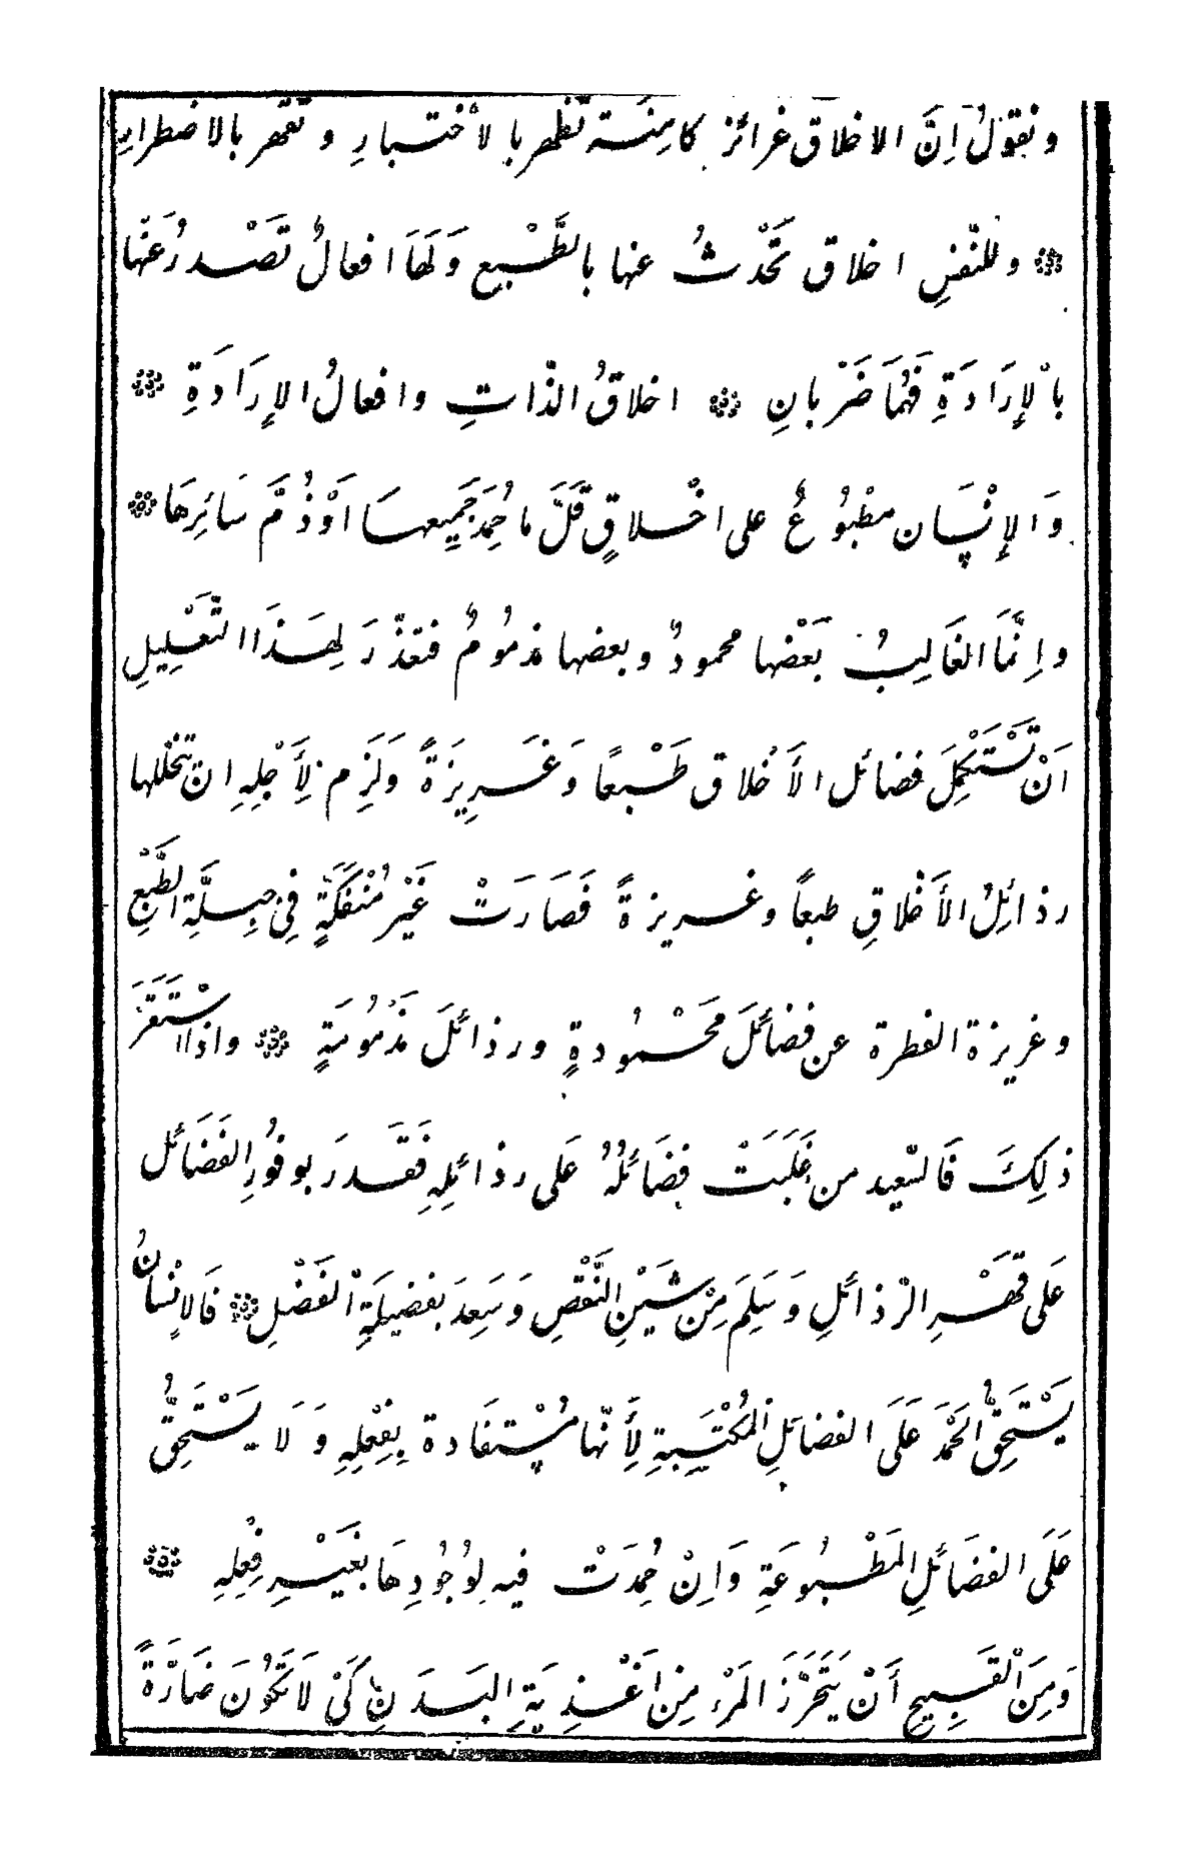 ونقولُ اِنَّ الاخلاق غرائز كامِنَة تظهر بالأختبارِ وتقهر بالاضطرارِ
۞ وللنّفسِ اخلاق تَحْدثُ عنها بالطَّبْع وَلَهَا افعالٌ تَصْدرُ عَنْهَا
بالْإِرَادَةِ فَهُمَا ضَرْبانِ ۞ اخلاقُ الذّاتِ وافعالُ الإِرَادَةِ ۞
وَالإِنْسَان مطْبُوعٌ على اخْلاقٍ قَلَّ ما حُمِدَ جَمِيعهَا اَوْ ذُمَّ سَائِرهَا ۞
وانَّمَا الغَالِبُ بَعْضها محمودٌ وبعضها مذمُومٌ فتعذّرَ لِهَذَا التَّعْلِيلِ
اَنْ تَسْتَكْمِلَ فضائل الأَخْلاق طَبْعًا وَغَرِيزَةً وَلَزِم لِأَجْلِهِ ان تتخللها
رذائِلُ الأَخْلاقِ طبعاً وغريزةً فَصَارَتْ غَيْر مُنْفَكَّةٍ فِى جِبِلَّةِ الطَّبْعِ
وغريزة الفطرة عن فضائَلَ مَحْمُودةٍ ورذائَلَ مَذْمُومَةٍ ۞ واذا اسْتَقَرَّ
ذلِكَ فَالسّعيد من غَلَبَتْ فضَائلُهُ عَلى رذائِلِهِ فَقَدرَ بوفُورِ الفَضَائل
عَلى قَهْرِ الرّذائلِ وَسَلِمَ مِنْ شَيْنِ النَّقْصِ وَسَعِدَ بفضيلَةِ الْفَضْلِ ۞ فَالانْسانُ
يَسْتَحِقُّ الحَمْدَ عَلَى الفضائلِ المُكْتَسِبةِ لِأَنّها مُسْتفَادة بِفِعْلِهِ وَلَا يَسْتَحِقُّ
عَلَى الفضَائلِ المَطْبُوعَةِ وَاِنْ حُمِدَتْ فيه لِوُجُودِهَا بغَيْرِ فِعْلِهِ ۞
وَمِنَ الْقَبِيحِ أَنْ يَتَحَرَّزَ المَرْء مِن اَغْذِيَةِ البَدَنِ كَىْ لَا تَكُونَ ضَارَّةً